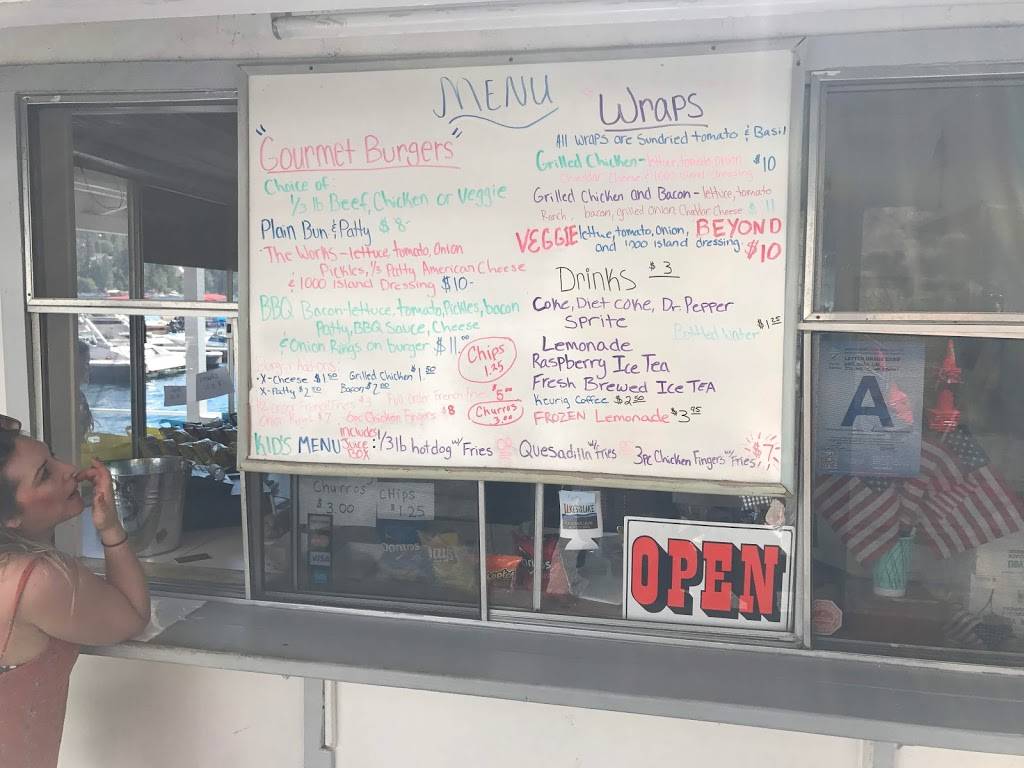 MENU
"Gourmet Burgers"
Choice of:
1/3 lb Beef, Chicken or Veggie
Plain Bun & Patty $8-
The Works - lettuce, tomato, Onion
Pickles, 1/3 Patty American Cheese
& 1000 Island Dressing $10-
BBQ Bacon - lettuce, tomato, Pickles, bacon
Patty, BBQ Sauce, Cheese
& Onion Rings on burger $11.00
Chips
1.25
X-Cheese $1.50 Grilled Chicken $1.50
X-Patty $2.00 Bacon $2.00
$5.00
6pc Chicken Fingers $8
Churros
3.00
Wraps
All wraps are Sundried tomato & Basil
Grilled Chicken - lettuce, tomato, onion $10
Cheddar Cheese & 1000 island dressing
Grilled Chicken and Bacon - lettuce, tomato
Ranch, bacon, grilled onion, Cheddar Cheese $11
VEGGIE lettuce, tomato, Onion, BEYOND
and 1000 island dressing $10
Drinks $3
Coke, Diet Coke, Dr. Pepper
Sprite
Bottled Water $1.25
Lemonade
Raspberry Ice Tea
Fresh Brewed Ice TEA
Keurig Coffee $2.50
FROZEN Lemonade $3.95
KIDS MENU includes Juice BOX : 1/3 lb hotdog w/ Fries Quesadilla w/ Fries 3pc Chicken Fingers w/ Fries $7
Churros
$3.00
CHIPS
$1.25
VISA
Doritos
Lays
OPEN
A